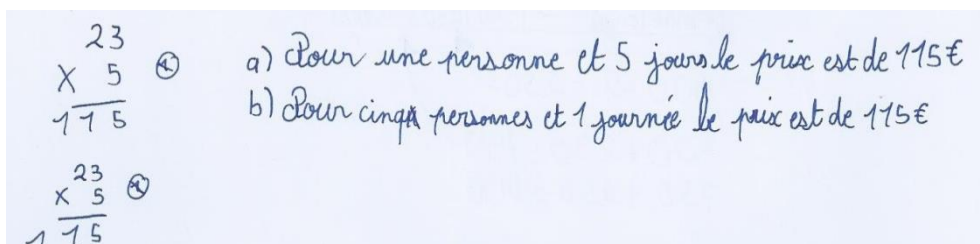 23
x 5 ①
115
a) Pour une personne et 5 jours le prix est de 115€
b) Pour cinq personnes et 1 journée le prix est de 115€
23
x 5 ①
115